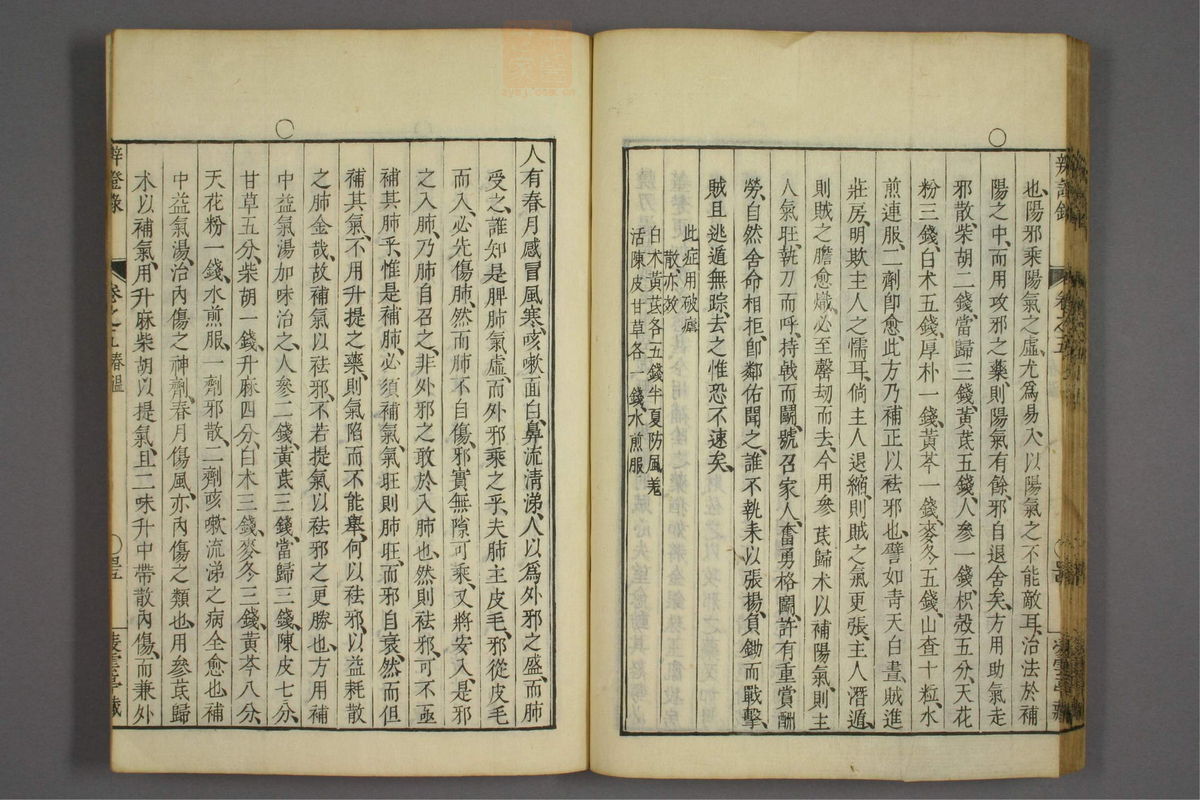 也、陽邪乘陽氣之虛、尤爲易入、以陽氣之不能敵耳、治法於補
陽之中、而用攻邪之藥、則陽氣有餘、邪自退舍矣、方用助氣走
邪散、柴胡二錢、當歸三錢、黃芪五錢、人參一錢、枳殼五分、天花
粉三錢、白朮五錢、厚朴一錢、黃芩一錢、麥冬五錢、山查十粒、水
煎、連服、二劑卽愈、此方乃補正以袪邪也、譬如靑天白晝、賊進
莊房、明欺主人之懦耳、倘主人退縮、則賊之氣更張、主人潛遁、
則賊之膽愈熾、必至罄刧而去、今用參芪歸朮以補陽氣、則主
人氣旺、執刀而呼、持戟而鬭、號召家人、奮勇格鬭、許有重賞酬
勞、自然舍命相拒、卽鄰佑聞之、誰不執耒以張揚、負鋤而戰擊、
賊且逃遁無踪、去之惟恐不速矣、
此症用破瘧
散、亦效
白朮黃芪各五錢半夏防風羗
活陳皮甘草各一錢、水煎服
人有春月感冒風寒、咳嗽面白、鼻流清涕、人以爲外邪之盛、而肺
受之、誰知是脾肺氣虛、而外邪乘之乎、夫肺主皮毛、邪從皮毛
而入、必先傷肺、然而肺不自傷、邪實無隙可乘、又將安入、是邪
之入肺、乃肺自召之、非外邪之敢於入肺也、然則袪邪、可不亟
補其肺乎、惟是補肺、必須補氣、氣旺則肺旺、而邪自衰、然而但
補其氣、不用升提之藥、則氣陷而不能舉、何以袪邪、以益耗散
之肺金哉、故補氣以袪邪、不若提氣以袪邪之更勝也、方用補
中益氣湯加味治之、人參二錢、黃芪三錢、當歸三錢、陳皮七分、
甘草五分、柴胡一錢、升麻四分、白朮三錢、麥冬三錢、黃芩八分、
天花粉一錢、水煎服、一劑邪散、二劑咳嗽流涕之病全愈也、補
中益氣湯、治內傷之神劑、春月傷風、亦內傷之類也、用參芪歸
朮以補氣、用升麻柴胡以提氣、且二味升中帶散、內傷、而兼外